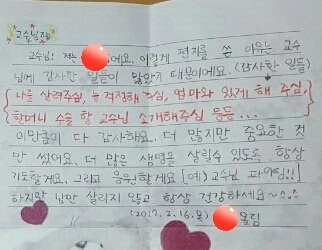 교수님께
교수님! 저는 에요. 이렇게 편지를 쓴 이유는 교수
님께 감사한 일들이 많았기 때문이에요. (감사한 일들)
나를 살려주심, 늘 걱정해 주심, 엄마와 있게 해 주심,
할머니 수술 할 교수님 소개해주심 등등...
이만큼이 다 감사해요. 더 많지만 중요한 것
만 썼어요. 더 많은 생명을 살릴수 있도록 항상
기도할게요. 그리고 응원할게요 [예] 교수님 파이팅!!
하지만 난만 살리지 말고 항상 건강하세요~^^
(2017. 2. 16. 목) 올림